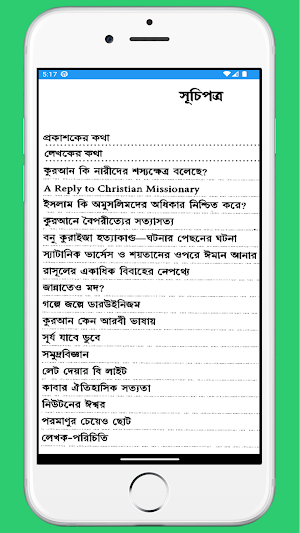 5:17
সূচিপত্র
প্রকাশকের কথা
লেখকের কথা
কুরআন কি নারীদের শস্যক্ষেত্র বলেছে?
A Reply to Christian Missionary
ইসলাম কি অমুসলিমদের অধিকার নিশ্চিত করে?
কুরআনে বৈপরীত্যের সত্যাসত্য
বনু কুরাইজা হত্যাকান্ড—ঘটনার পেছনের ঘটনা
স্যাটানিক ভার্সেস ও শয়তানের ওপরে ঈমান আনার
রাসূলের একাধিক বিবাহের নেপথ্যে
জান্নাতেও মদ?
গল্পে জল্পে ডারউইনিজম
কুরআন কেন আরবী ভাষায়
সূর্য যাবে ডুবে
সমুদ্রবিজ্ঞান
লেট দেয়ার বি লাইট
কাবার ঐতিহাসিক সত্যতা
নিউটনের ঈশ্বর
পরমাণুর চেয়েও ছোট
লেখক-পরিচিতি